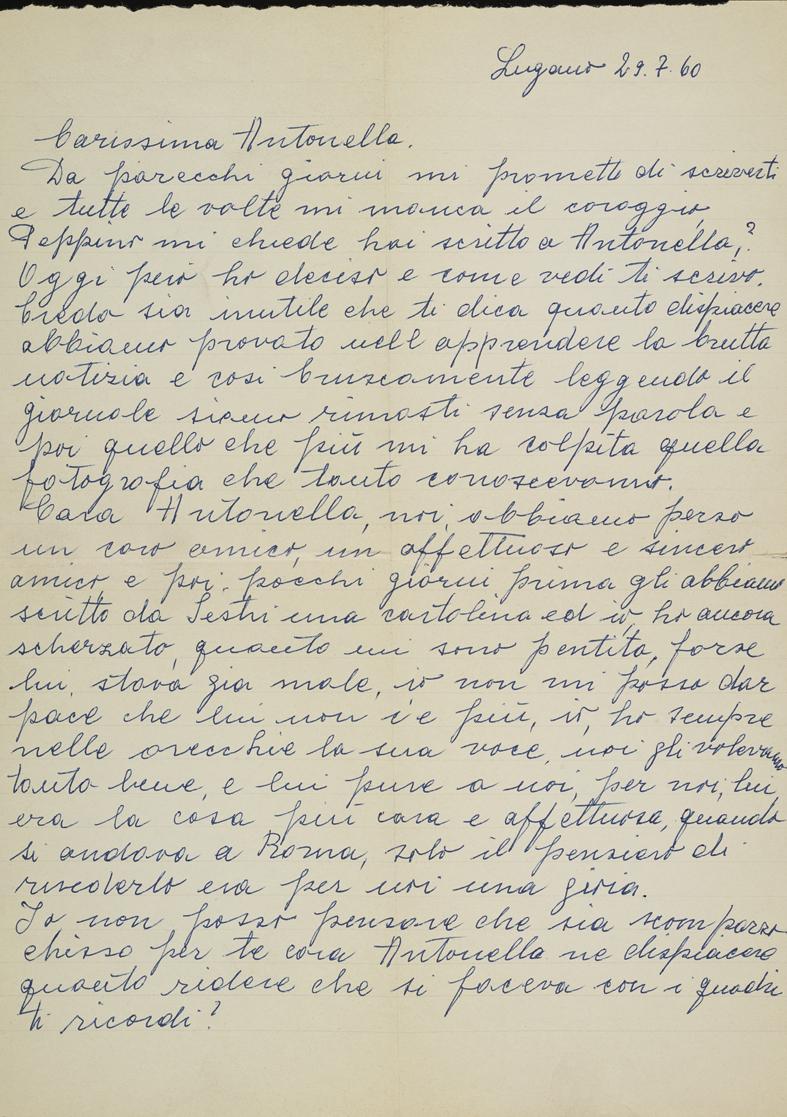 Lugano 29.7.60
Carissima Antonella.
Da parecchi giorni mi promett di scriverti
e tutte le volte mi manca il coraggio,
Peppino mi chiede hai scritto a Antonella,?
Oggi però ho deciso e come vedi ti scrivo.
Credo sia inutile che ti dica quanto dispiacere
abbiamo provato nell apprendere la brutta
notizia e cosi bruscamente leggendo il
giornale siamo rimasti senza parola e
poi quello che più mi ha colpita quella
fotografia che tanto conoscevamo.
Cara Antonella, noi, abbiamo perso
un caro amico, un affettuoso e sincero
amico, e poi, pocchi giorni prima gli abbiamo
scritto da Sestri una cartolina ed io, ho ancora
scherzato, quanto mi sono pentita, forse
lui, stava gia male, io non mi posso dar
pace che lui non c'e più, io, ho sempre
nelle orecchie la sua voce, noi gli volevamo
tanto bene, e lui pure a noi, per noi, lui,
era la cosa più cara e affettuosa, quando
si andava a Roma, solo il pensiero di
rivederlo era per noi una gioia.
Io non posso pensare che sia scomparso
chissa per te cara Antonella ne dispiacere
quanto ridere che si faceva con i quadri
ti ricordi?